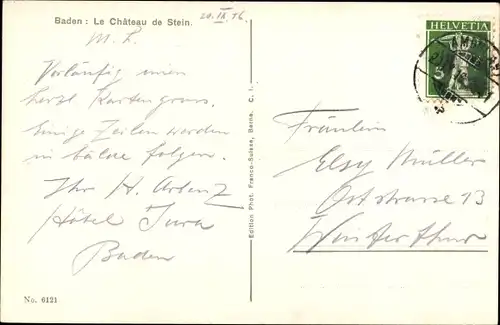 Baden : Le Château de Stein.
20. IX. 16.
M. L.
Vorläufig einen
herzl. Kartengruss.
Einige Zeilen werden
in bälde folgen.
Ihr H. Arbenz
Hôtel Jura
Baden
No. 6121
Edition Phot. Franco-Suisse, Berne. C. I.
HELVETIA
5
Fräulein
Elsy Müller
Oststrasse 13
Winterthur